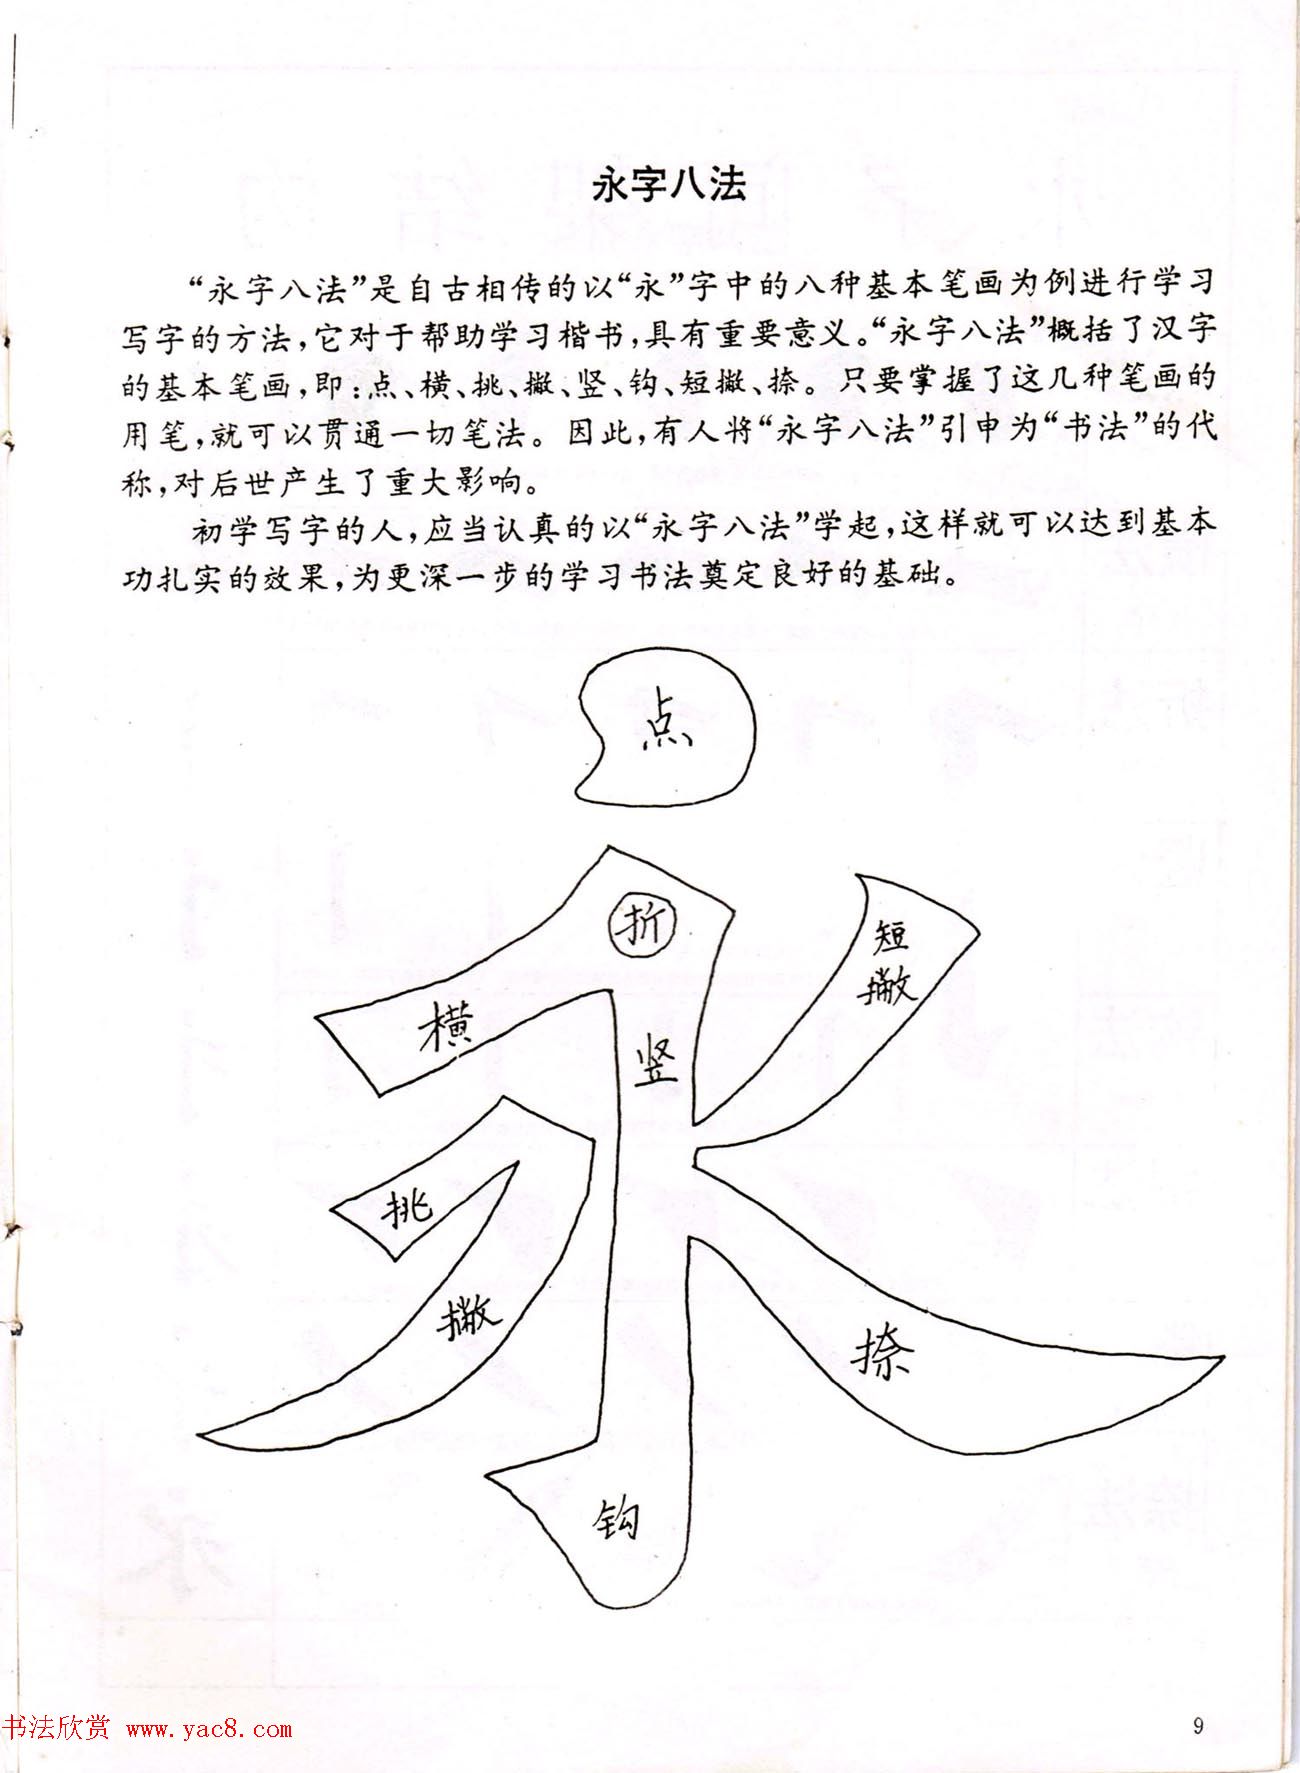 永字八法
“永字八法”是自古相传的以“永”字中的八种基本笔画为例进行学习
写字的方法，它对于帮助学习楷书，具有重要意义。“永字八法”概括了汉字
的基本笔画，即：点、横、挑、撇、竖、钩、短撇、捺。只要掌握了这几种笔画的
用笔，就可以贯通一切笔法。因此，有人将“永字八法”引申为“书法”的代
称，对后世产生了重大影响。
初学写字的人，应当认真的以“永字八法”学起，这样就可以达到基本
功扎实的效果，为更深一步的学习书法奠定良好的基础。
点
折
短
撇
横
竖
挑
撇
捺
钩
书法欣赏 www.yac8.com
9